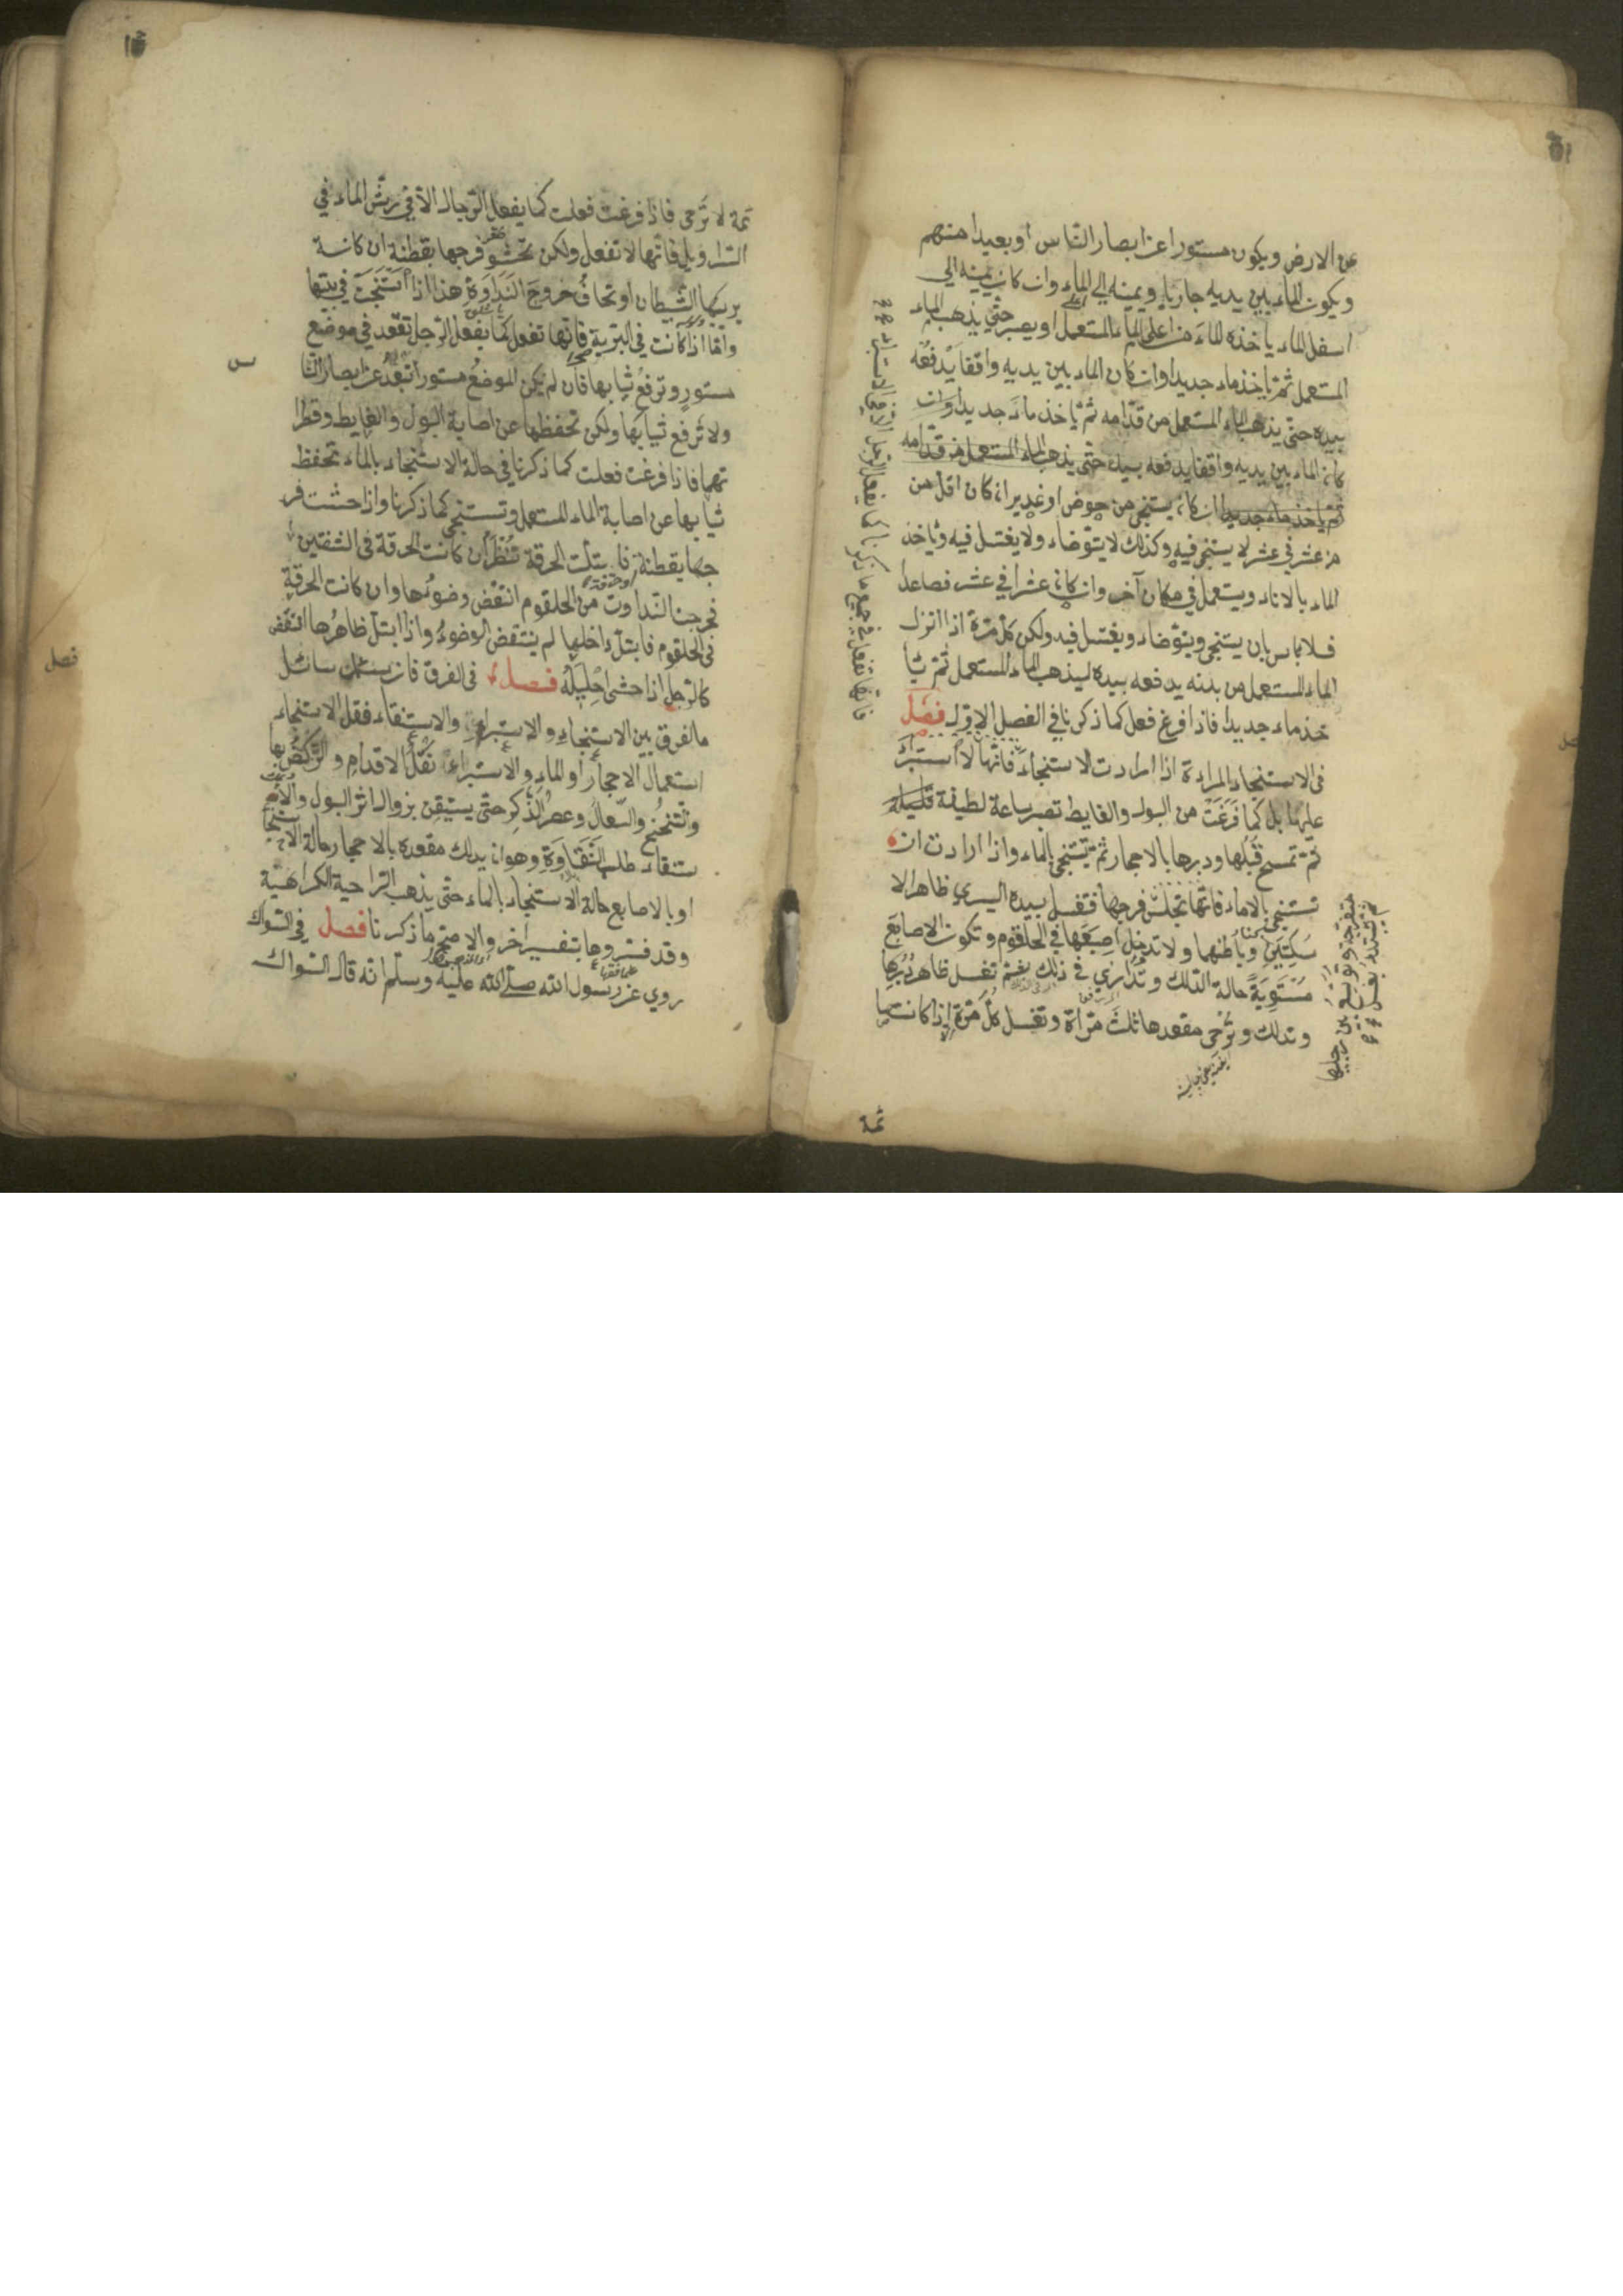 عن الارض ويكون مستورا عن ابصار الناس او بعيدا منهم
ويكون الماء بين يديه جاريا ويمينه الى الماء وان كان يمينه الى
اسفل الماء ياخذه الماء من اعلى الماء المستعمل او يصبر حتى يذهب الماء
المستعمل ثم ياخذ ماء جديدا وان كان الماء بين يديه واقفا يدفعه
بيده حتى يذهب الماء المستعمل من قدامه ثم ياخذ ماء جديدا وان
كان الماء بين يديه واقفا يدفعه بيده حتى يذهب الماء المستعمل من قدامه
ثم ياخذ ماء جديدا ان كان يستنجى من حوض او غدير ان كان اقل من
من عشر في عشر لا يستنجى فيه وكذلك لا يتوضاء ولا يغتسل فيه وياخذ
الماء بالاناء ويستعمل في مكان آخر وان كان عشرا في عشر فصاعدا
فلا باس بان يستنجى ويتوضاء ويغتسل فيه ولكن كل مرة اذا انزل
الماء المستعمل من بدنه يدفعه بيده ليذهب الماء المستعمل ثم يا
خذ ماء جديدا فاذا فرغ فعل كما ذكرنا في الفصل الاول فصل
في الاستنجاء المراءة اذا ارادت الاستنجاء فانها لا استبرآء
عليها بل كما فرغت من البول والغايط تصبر ساعة لطيفة قليلة
ثم تمسح قبلها ودبرها بالاحجار ثم تستنجى بالماء واذا ارادت ان
تستنجى بالاماء فانها تجلس فرجها فتغسل بيده اليسرى ظاهر الا
سكتين وباطنهما ولا تدخل اصبعها في الحلقوم وتكون الاصابع
مستوية حالة الدلك و في ذلك تغسل ظاهر دبرها
وتدلك وترخى مقعدها ثلث مراة وتغسل كل مرة اذا كانت
ثمة
ثمة لا ترخى فاذا فرغت فعلت كما يفعل الرجال الا في رش الماء في
السراويل فانها لا تفعل ولكن تحشو فرجها بقطنة ان كانة
يريبها الشيطان او تخاف خروج النداوة هذا اذا استنجت في بيتها
واما اذا كانت في البرية فانها تفعل كما يفعل الرجل تقعد في موضع
مستور وترفع ثيابها فان لم يكن الموضع مستورا تبعد عن ابصار النا
س
ولا ترفع ثيابها ولكن تحفظها عن اصابة البول والغايط وقطرا
تهما فاذا فرغت فعلت كما ذكرنا في حالة الاستنجاء بالماء تحفظ
ثيابها عن اصابة الماء المستعمل وتستنجى كما ذكرنا واذا حشت فر
جها بقطنة فابتلت الخرقة تنظر ان كانت الخرقة في الشفتين
فخرجت النداوت من الحلقوم انتقض وضوئها وان كانت الخرقة
في الحلقوم فابتل داخلها لم ينتقض الوضوء واذا ابتل ظاهرها انتقض
كالرجل اذا حشى احليله فصل في الفرق فان سئلك سائل
ما الفرق بين الاستنجاء والاستبراء والاستنقاء فقل الاستنجاء
استعمال الاحجار او الماء والاستبراء نقل الاقدام والركض بها
والتنحنح والسعال وعصر الذكر حتى يستيقن بزوال اثر البول والا
ستنقاء طلب النقاوة وهو ان يدلك مقعده بالاحجار حالة الاستنجا
او بالاصابع حالة الاستنجاء بالماء حتى يذهب الراحية الكراهية
وقد فسروها بتفسير اخر والاصح ما ذكرنا فصل في السواك
روي عن رسول الله صلى الله عليه وسلم انه قال السواك
فصل